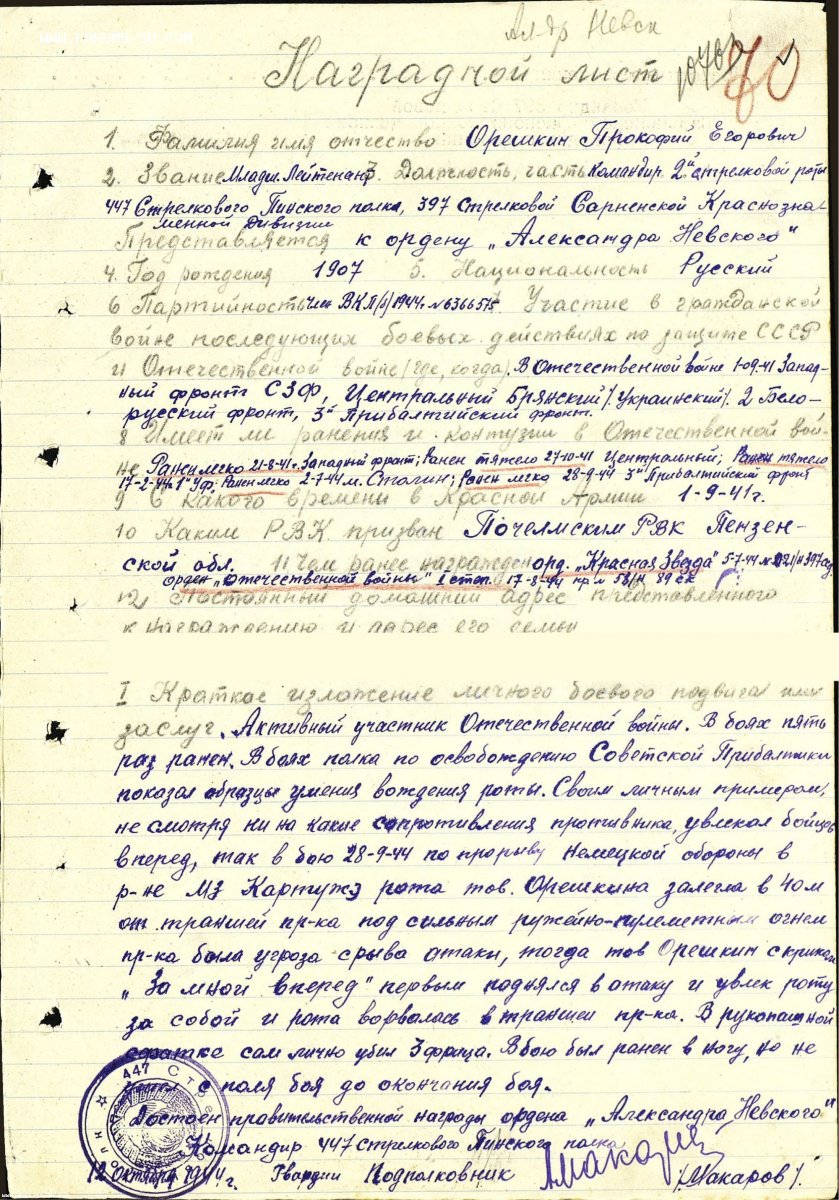 Ал-др Невск
10703 70
Наградной лист
1. Фамилия имя отчество Орешкин Прокофий Егорович
2. Звание Младш. Лейтенант 3. Должность, часть Командир 2й стрелковой роты
447 Стрелкового Пинского полка, 397 Стрелковой Сарненской Краснозна-
менной Дивизии
Представляется к ордену „Александра Невского"
4. Год рождения 1907 5. Национальность Русский
6 Партийность член ВКП(б) 1944г. № 6366515 Участие в гражданской
войне последующих боевых действиях по защите СССР
и Отечественной войне (где, когда). В Отечественной войне 1-09-41 Запад-
ный фронт СЗФ, Центральный Брянский 1. Украинский 1. 2 Бело-
русский фронт, 3й Прибалтийский фронт.
8 Имеет ли ранения и контузии в Отечественной вой-
не Ранен легко 21-8-41г. Западный фронт; Ранен тяжело 27-10-41 Центральный; Ранен тяжело
17-2-44г. 1й Уф; Ранен легко 2-7-44 м. Сталин; Ранен легко 28-9-44 3й Прибалтийский фронт
9 С какого времени в Красной Армии 1-9-41г.
10 Каким РВК призван Почелмским РВК Пензен-
ской обл. 11 Чем ранее награжден орд. „Красная Звезда" 5-7-44 № 021/н 397 сд
орден „Отечественной войны" I степ. 17-8-44 пр. № 58/н 89 ск
12 Постоянный домашний адрес представленного
к награждению и адрес его семьи
I Краткое изложение личного боевого подвига или
заслуг. Активный участник Отечественной войны. В боях пять
раз ранен. В боях полка по освобождению Советской Прибалтики
показал образцы умения вождения роты. Своим личным примером,
не смотря ни на какие сопротивления противника, увлекал бойцов
вперед, так в бою 28-9-44 по прорыву немецкой обороны в
р-не Мз Картужэ рота тов. Орешкина залегла в 40 м
от траншей пр-ка под сильным ружейно-пулеметным огнем
пр-ка была угроза срыва атаки, тогда тов Орешкин с криком
„За мной вперед" первым поднялся в атаку и увлек роту
за собой и рота ворвалась в траншеи пр-ка. В рукопашной
схватке сам лично убил 3 фрица. В бою был ранен в ногу, но не
ушел с поля боя до окончания боя.
Достоен правительственной награды ордена „Александра Невского"
Командир 447 Стрелкового Пинского полка
12 Октября 1944 г. Гвардии Подполковник Макаров /Макаров/.
447 Стрел